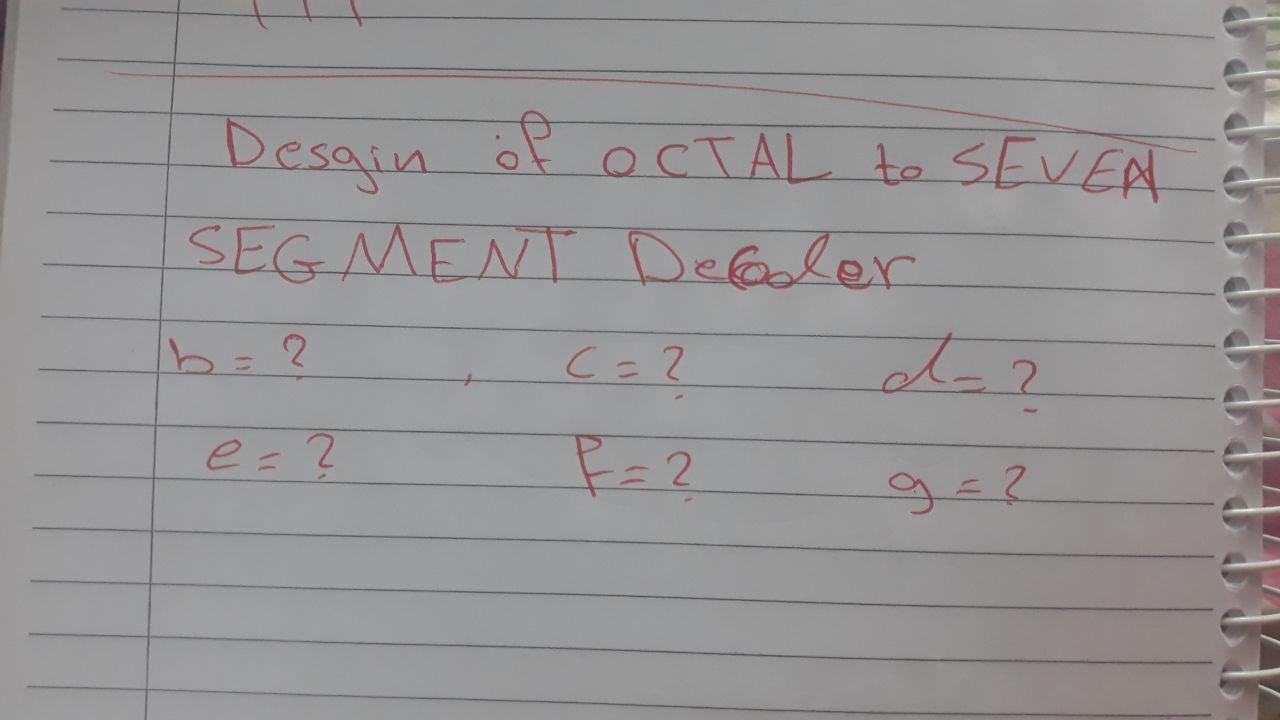 Desgin of OCTAL to SEVEN
SEGMENT Decoder
b = ? , c = ? d = ?
e = ? f = ? g = ?